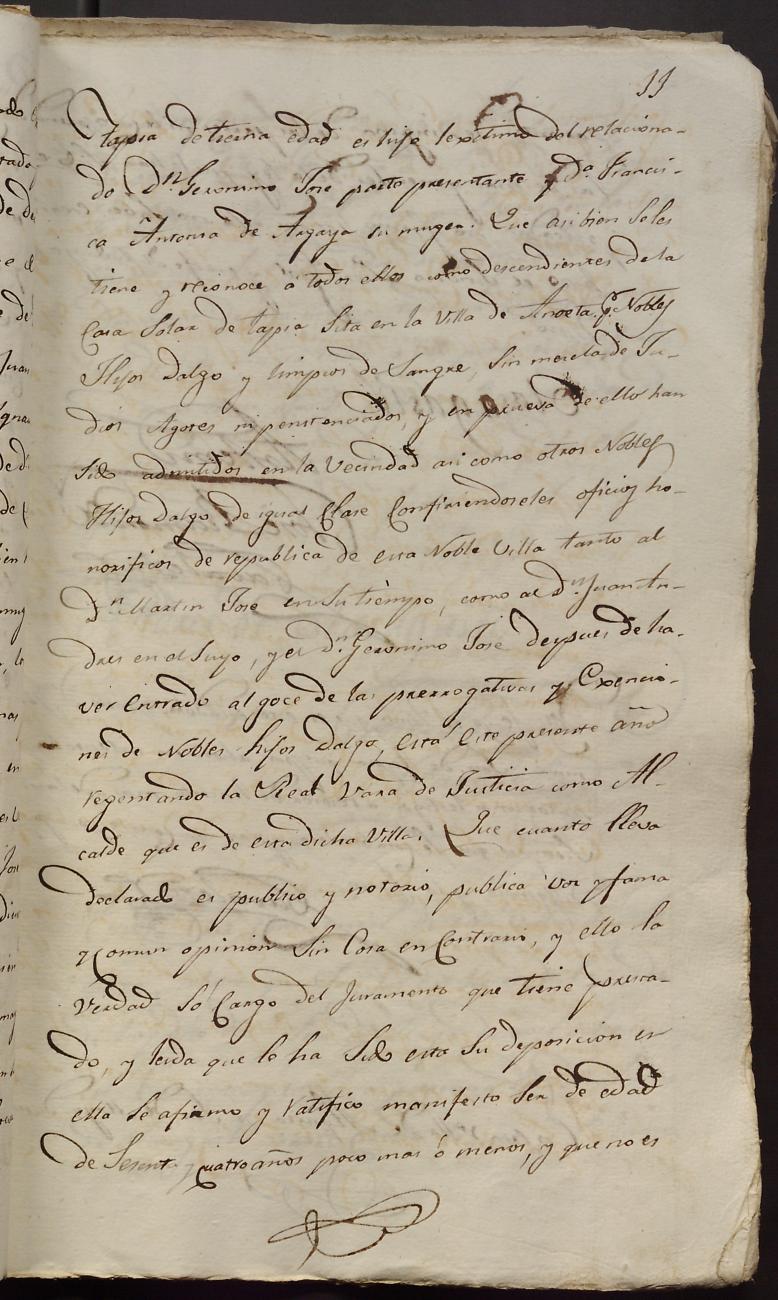 11
tapia de tierna edad es hijo lexitimo del relaciona-
do Dn. Geronimo Jose parte presentante y Da. Francis-
ca Antonia de Argaya su muger. Que asi bien seles
tiene y reconoce à todos ellos como descendientes de la
Casa Solar de tapia Sita en la Villa de Anoeta pr. Nobles
Hijos dalgo y limpios de Sangre, sin mezcla de Ju-
dios Agotes ni penitenciados, y en prueva de ello han
sido admitidos en la Vecindad asi como otros Nobles
Hijos dalgo de igual Clase Confiriendoseles oficios ho-
norificos de republica de esta Noble Villa tanto al
Dn. Martin Jose en su tiempo, como al Dn. Juan An-
dres en el suyo, y el Dn. Geronimo Jose depues de ha-
ver entrado al goce de las prerrogativas y Exencio-
nes de Nobles hijos dalgo, està este presente año
regentando la Real Vara de Justicia como Al-
calde que es de esta dicha Villa. Que cuanto lleva
declarado es publico y notorio, publica voz y fama
y comun opinion Sin Cosa en Contrario, y ello la
verdad só Cargo del Juramento que tiene presta-
do, y leida que le ha Sido esta Su deposicion en
ella Se afirmo y ratifico manifesto Ser de edad
de Sesenta y cuatro años poco mas ó menos, y que no es